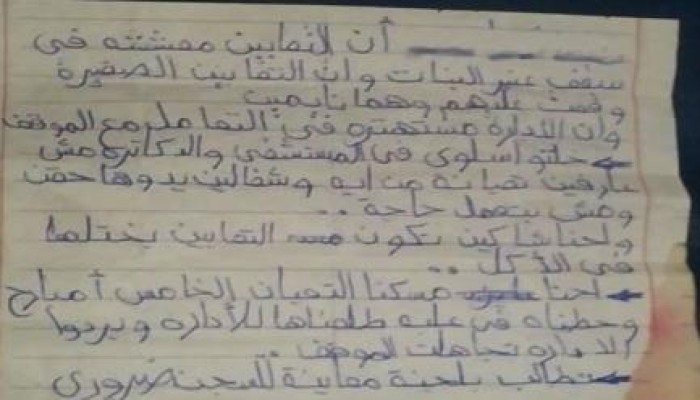 أن التعابين معششته في
سقف عنبر البنات وان التعابين الصغيرة
وقعت عليهم وهما نايمين
وان الأدارة مستهتره في التعامل مع الموقف
خالتو اسلوى في المستشفى والدكاترة مش
عارفين تعبانة من ايه وشغالين يدوها حقن
ومش بتعمل حاجة ..
ولحنا شاكين تكون مسه التعابين بختلها
في الأكل ..
احنا مسكنا التعبان الخامس أمبارح
وحطناه في علبه طلعناها للأداره وبردوا
الاداره تجاهلت الموقف ..
نطالب بلجنة معاينة للسجن ضروري